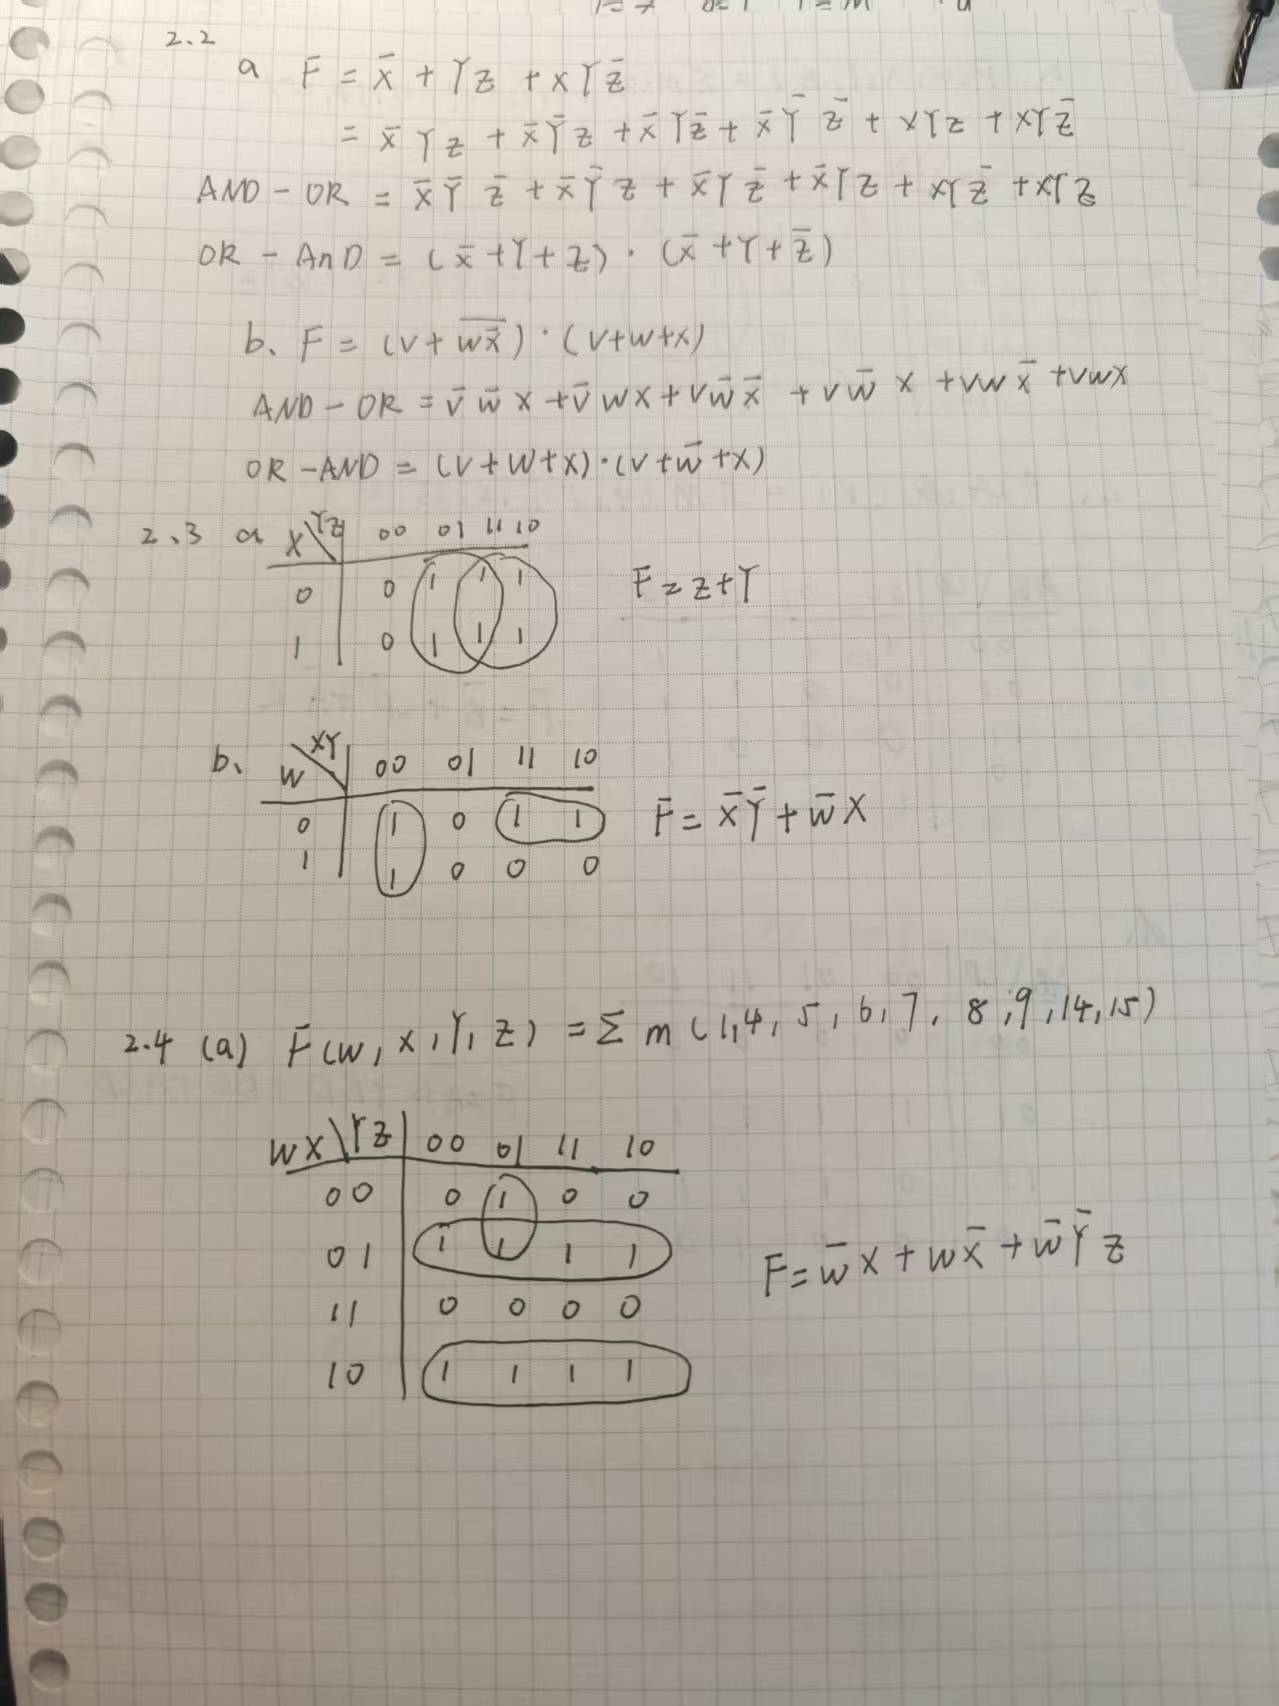 2.2
a F = x̄ + Yz + xYz̄
= x̄Yz + x̄Ȳz + x̄Yz̄ + x̄Ȳz̄ + xYz + xYz̄
AND-OR = x̄Ȳz̄ + x̄Ȳz + x̄Yz̄ + x̄Yz + xYz̄ + xYz
OR-AnD = (x̄+Y+z)·(x̄+Y+z̄)
b. F = (v+w̅x̅̄)·(v+w+x)
AND-OR = v̄w̄x + v̄wx + vw̄x̄ + vw̄x + vwx̄ + vwx
OR-AND = (v+w+x)·(v+w̄+x)
2.3 a X\YZ 00 01 11 10
0 0 1 1 1
1 0 1 1 1
F=z+Y
b. W\XY 00 01 11 10
0 1 0 1 1
1 1 0 0 0
F = x̄Ȳ + w̄X
2.4 (a) F(w,x,Y,z) = Σm(1,4,5,6,7,8,9,14,15)
WX\YZ 00 01 11 10
00 0 1 0 0
01 1 1 1 1
11 0 0 0 0
10 1 1 1 1
F = w̄x + wx̄ + w̄Ȳz